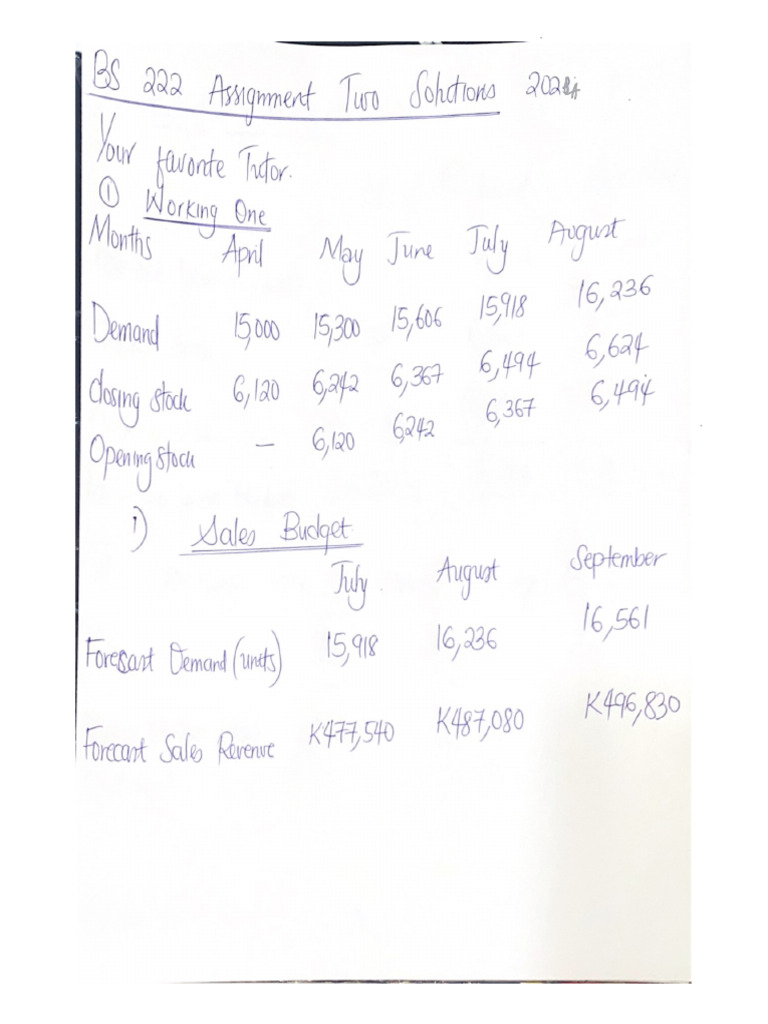 BS 222 Assignment Two Solutions 2024
Your favorite Tutor.
① Working One
Months April May June July August
Demand 15,000 15,300 15,606 15,918 16,236
Closing stock 6,120 6,242 6,367 6,494 6,624
Opening stock — 6,120 6,242 6,367 6,494
i) Sales Budget
July August September
Forecast Demand (units) 15,918 16,236 16,561
Forecast Sales Revenue K477,540 K487,080 K496,830